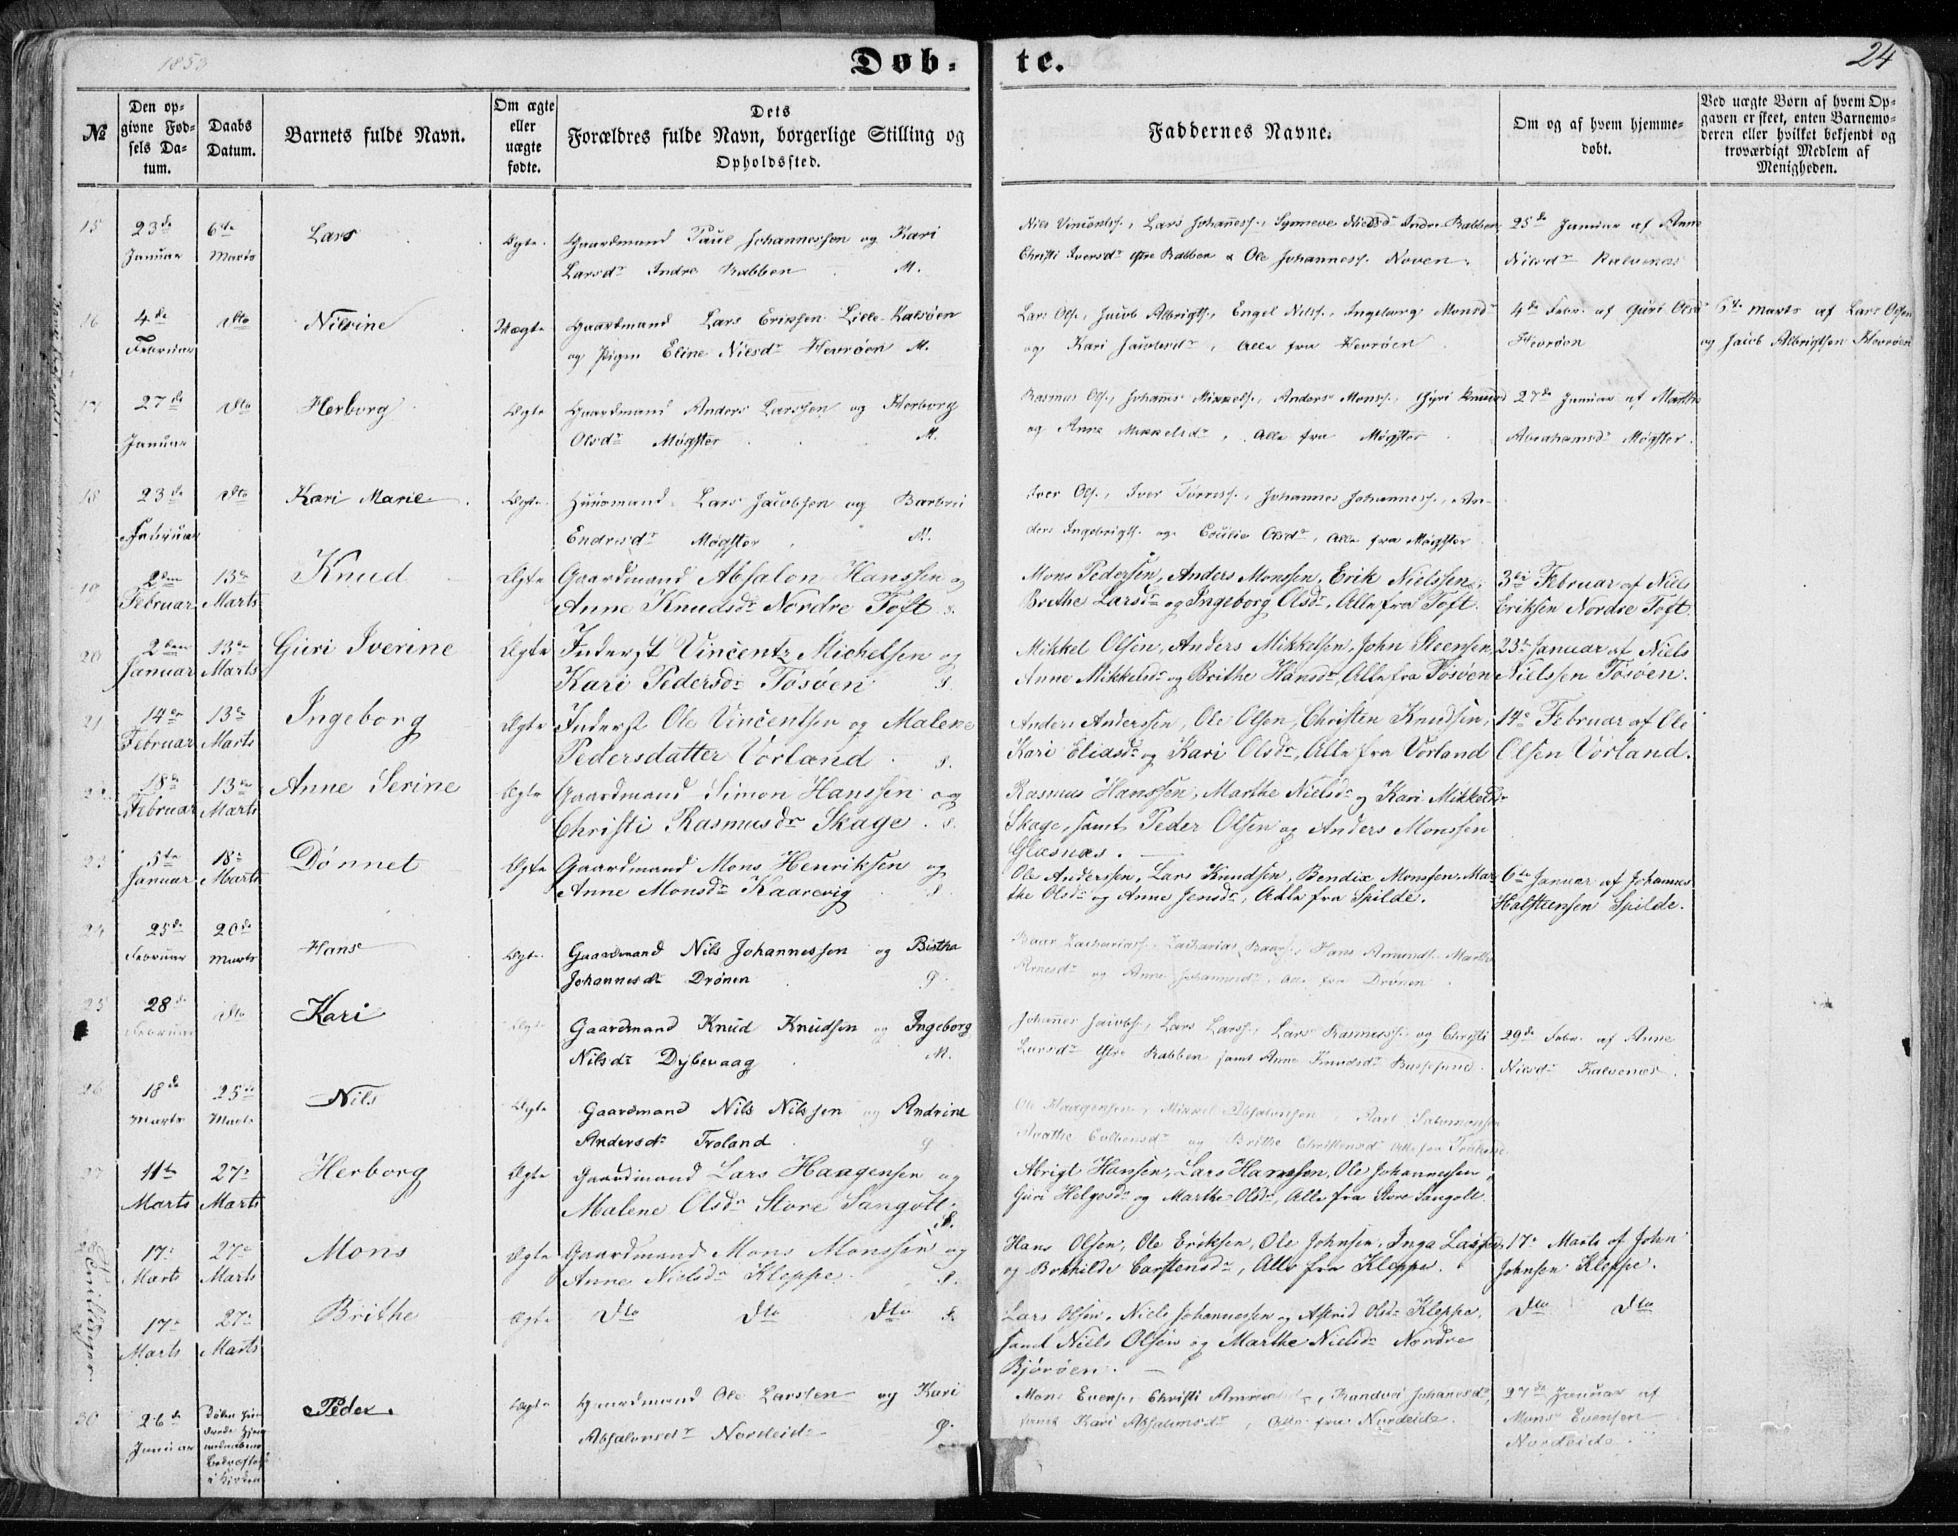 1853
Døb-
te.
24
№
Den op-
givne Fød-
sels Da-
tum.
Daabs
Datum.
Barnets fulde Navn.
Om ægte
eller
uægte
fødte.
Dets
Forældres fulde Navn, borgerlige Stilling og
Opholdssted.
Faddernes Navne.
Om og af hvem hjemme-
døbt.
Ved uægte Børn af hvem Op-
gaven er skeet, enten Barnemo-
deren eller hvilket bekjendt og
troværdigt Medlem af
Menigheden.
15
23de
Januar
6te
Marts
Lars
Ægte
Gaardmand Paul Johannessen og Kari
Larsdr Indre Rabben M.
Lars Johanness., Synneve Nielsdr Indre Rabben,
Christi Iversdr Øtre Rabben & Ole Johanness. Noven.
25de Januar af Anne
Nilsdr Kalvenæs
16
4de
Februar
dto
Nilsine
Uægte
Gaardmand Lars Eriksen Lille-Kalsøen
og Pigen Eline Nielsdr Hevrøen M.
Lars Ols., Jacob Albrigts., Engel Nilss., Ingeborg Monsdr
og Kari Jacobsdr, Alle fra Hevrøen
4de Febr. af Guri Olsd
Hevrøen
6te Marts af Lars Olsen
og Jacob Albrigtsen Hevrøen
17
27de
Januar
dto
Herborg
Ægte
Gaardmand Anders Larssen og Herborg
Olsdr Møgster M.
Rasmus Ols., Johans Mikkels., Anders Monss., Gyri Knudsd
og Anne Mikkelsdr, Alle fra Møgster
27de Januar af Marthe
Abrahamsdr Møgster.
18
23de
Februar
dto
Kari Marie
Ægte
Huusmand Lars Jacobsen og Barbru
Endresdr Møgster M.
Iver Ols., Iver Torress., Johannes Johanness., An-
ders Ingebrigts. og Cecilie Olsdr, Alle fra Møgster
19
2den
Februar
13de
Marts
Knud
Ægte
Gaardmand Absalon Hanssen og
Anne Knudsdr Nordre Toft S.
Mons Pedersen, Anders Monssen, Erik Nielssen,
Brithe Larsdr og Ingeborg Olsdr, Alle fra Toft.
3die Februar af Niels
Eriksen Nordre Toft.
20
2den
Januar
13de
Marts
Guri Iverine
Ægte
Inderst Vincentz Michelsen og
Kari Pedersdr Tøsøen S.
Mikkel Olsen, Anders Mikkelsen, John Steensen,
Anne Mikkelsdr og Brithe Hansdr, Alle fra Tøsøen
23de Januar af Niels
Nielssen Tøsøen.
21
14de
Februar
13de
Marts
Ingeborg
Ægte
Inderst Ole Vincentsen og Malene
Pedersdatter Vorland S.
Anders Anderssen, Ole Olsen, Christen Knudsen,
Kari Eliasdr og Kari Olsdr, Alle fra Vorland
14de Februar af Ole
Olsen Vorland.
22
18de
Februar
13de
Marts
Anne Serine
Ægte
Gaardmand Simon Hanssen og
Christi Rasmusdr Skage. S.
Rasmus Hanssen, Marthe Nielsdr og Kari Mikkelsdr
Skage, samt Peder Olsen og Anders Monssen
Glæsnæs.
23
5te
Januar
18de
Marts
Dønnet
Ægte
Gaardmand Mons Henriksen og
Anne Monsdr Kaarevig S.
Ole Anderssen, Lars Knudsen, Bendix Monssen, Mar-
the Olsdr og Anne Jensdr, Alle fra Spilde.
6te Januar af Johannes
Halsteensen Spilde.
24
25de
Februar
20de
Marts
Hans
Ægte
Gaardmand Nils Johannessen og Birtha
Johannesdr Drønen G.
Baar Zachariass., Zacharias Baars., Hans Amunds. Marthe
Arnesdr og Anne Johannesdr, Alle fra Drønen.
25
28de
Februar
dto
Kari
Ægte
Gaardmand Knud Knudsen og Ingeborg
Nilsdr Dybevaag M.
Johannes Jacobs., Lars Larss., Lars Rasmuss. og Christi
Larsdr Øtre Rabben samt Anne Knudsdr Bussesund.
29de Febr. af Anne
Nilsdr Kalvenæs.
26
18de
Marts
25de
Marts
Nils
Ægte
Gaardmand Nils Nilssen og Andrine
Andersdr Troland G
Ole Haagensen, Mikkel Absalonsen, Aart Salomonsen
og Brithe Christensdr Alle fra Troland
27
11te
Marts
27de
Marts
Herborg
Ægte
Gaardmand Lars Haagensen og
Malene Olsdr Store Sangolt. S.
Abrigt Hansen, Lars Hanssen, Ole Johannessen,
Guri Helgesdr og Marthe Olsdr, Alle fra Store Sangolt.
28
Tvillinger
17de
Marts
27de
Marts
Mons
Ægte
Gaardmand Mons Monssen og
Anne Nielsdr Kleppe. S.
Hans Olsen, Ole Eriksen, Ole Johnsen, Inga Larsdr
og Botthilde Carstensdr, Alle fra Kleppe.
17de Marts af John
Johnsen Kleppe.
17de
Marts
27de
Marts
Brithe
Ægte
dto dto dto S.
Lars Olsen, Niels Johannessen og Astrid Olsdr Kleppe,
samt Niels Olsen og Marthe Nielsdr Nordre
Bjørøen.
dto dto
30
26de
Januar
i Kirken
Peder.
Ægte
Gaardmand Ole Larssen og Kari
Absalonsdr Nordeide G.
Mons Evens., Christi, Randvei Johannesdr,
samt Kari Absalonsdr, Alle fra Nordeide.
27de Januar af
Mons Evensen
Nordeide.